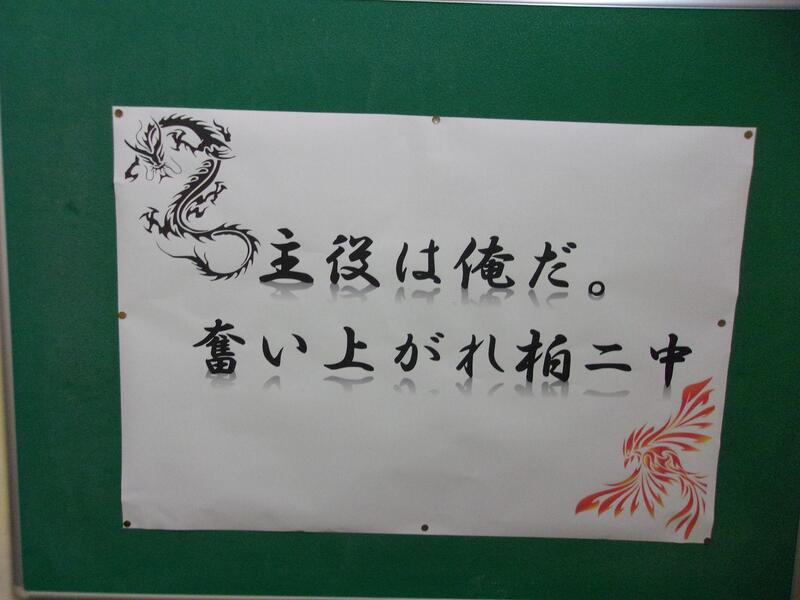 主役は俺だ。
奮い上がれ柏二中